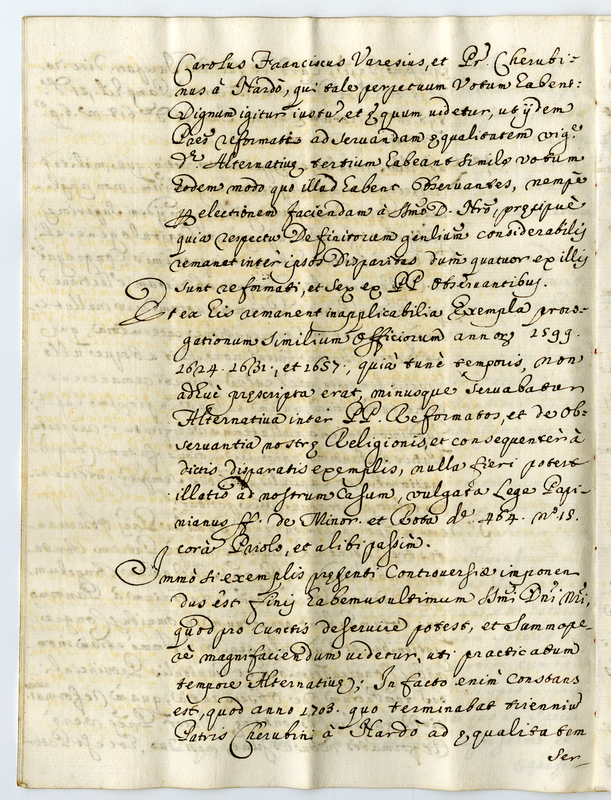 Carolus Franciscus Varesius, et Pr. Cherubi-
nus à Nardò, qui tale perpetuum Votum habent:
Dignum igitur iustũ, et ęquum uidetur, ut ijdem
Patres reformati ad servandam ęqualitatem vig.e
d.ę Alternativę tertium habeant simile votum
eodem modo quo illud habent Observantes, nempè
per electionem faciendam à Ss̃mo D. Ñro, pręcipuè
quia respectu Definitorum genlium considerabilis
remanet inter ipsos Disparitas dum quatuor ex illis
sunt reformati, et sex ex PP Observantibus.
Et ex his remanent inapplicabilia Exempla proro-
gationum similium officiorum annorum 1599.
1624. 1631., et 1657., quià tunc temporis, non
adhuc pręscripta erat, minusque servabatur
Alternativa inter PP. Reformatos, et de Ob-
servantia nostrę Religionis, et consequentèr à
dictis disparatis exemplis, nulla fieri potest
illatio ad nostrum Casum, vulgata Lege Papi-
nianus ff. de Minor. et Rota dec. 464. n.o 15.
corà Priolo, et alibi passim.
Immò si exemplis pręsenti Controversiæ imponen
dus est finis habemus ultimum Ss̃mi Dñi Ñri,
quod pro cunctis deseruire potest, et summope-
rè magnifaciendum uidetur, uti practicatum
tempore Alternativę; In facto enim constans
est, quod anno 1703. quo terminabat triennium
Patris Cherubini à Nardò ad ęqualitatem
ser-